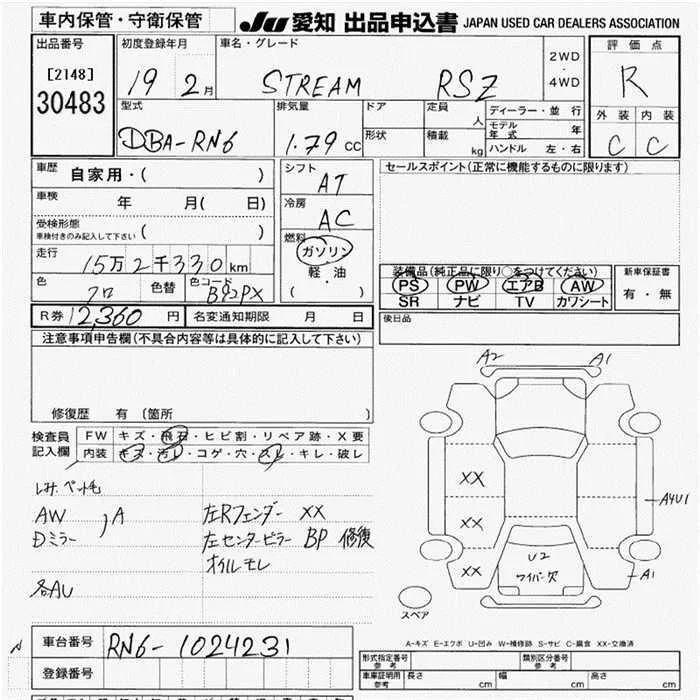 車内保管・守衛保管
JU 愛知 出品申込書 JAPAN USED CAR DEALERS ASSOCIATION
出品番号
[2148]
30483
初度登録年月
19 2月
車名・グレード
STREAM RSZ
2WD
・
4WD
評価点
R
外装 内装
C C
型式
DBA-RN6
排気量
1.79 cc
ドア
形状
定員
人
積載
kg
ディーラー・並行
モデル年式 年
ハンドル 左・右
車歴
自家用・( )
車検
年 月( 日)
受検形態
車検付きのみ記入して下さい ( )
走行
15万2千330km
色
クロ
色替
色コード
B92PX
シフト
AT
冷房
AC
燃料
ガソリン
軽・油
( )
セールスポイント(正常に機能するものに限ります)
装備品(純正品に限り○をつけてください)
PS PW エアB AW
SR ナビ TV カワシート
新車保証書
有・無
R券 12,360 円
名変通知期限 月 日
後日品
注意事項申告欄(不具合内容等は具体的に記入して下さい)
修復歴 有 (箇所 )
検査員
記入欄
FW キズ・飛石・ヒビ割・リペア跡・X要
内装 キズ・汚レ・コゲ・穴・スレ・キレ・破レ
しみ、ペット毛
AW
Dミラー
) A
各AU
左Rフェンダー XX
左センターピラー BP 修復
オイルモレ
A2 A1
XX
XX
XX
A4U1
A1
U2
ワイパー欠
スペア
A-キズ E-エクボ U-凹み W-補修跡 S-サビ C-腐食 XX-交換済
N
車台番号
RN6-1024231
登録番号
形式指定番号
参考
類別区分番号
参考
車庫証明用
参考
長さ cm
幅 cm
高さ cm